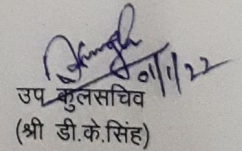 01/1/22
उप कुलसचिव
(श्री डी.के.सिंह)